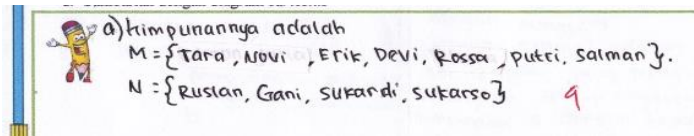 a) himpunannya adalah
M = {Tara, Novi , Erik, Devi, Rossa, putri, salman}.
N = {Ruslan, Gani, sukardi, sukarso} 9